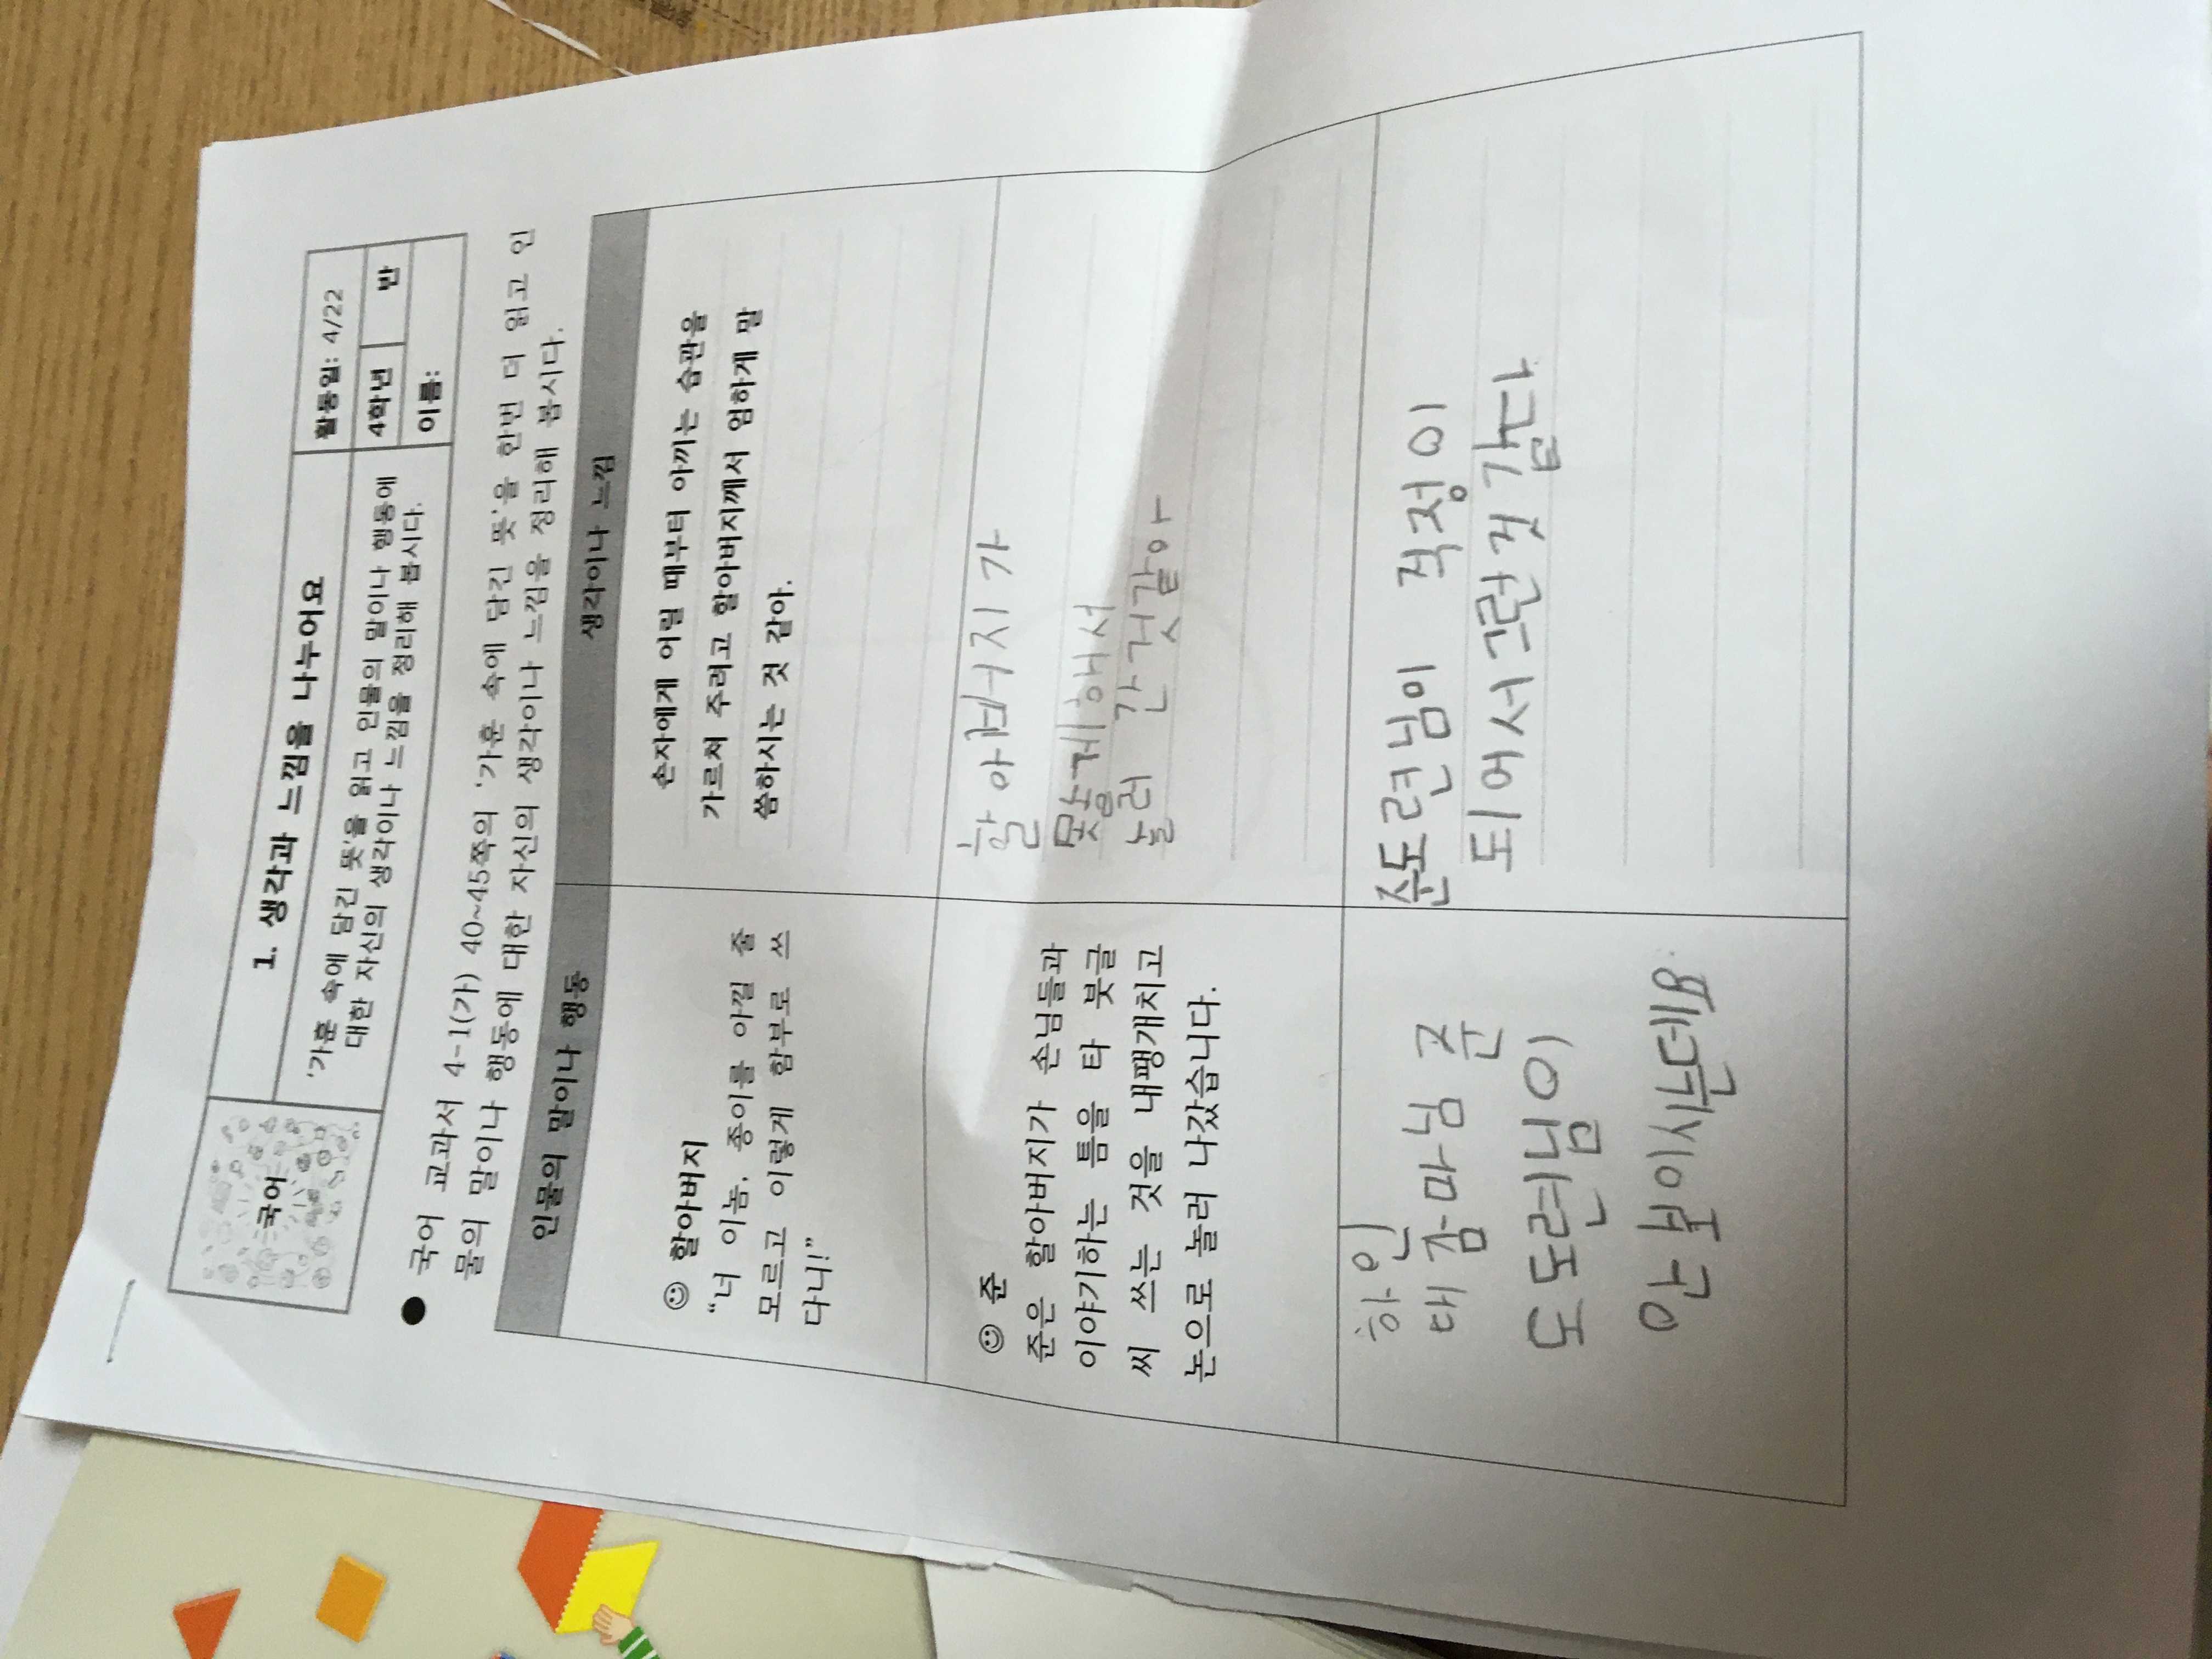 국어
1. 생각과 느낌을 나누어요
'가훈 속에 담긴 뜻'을 읽고 인물의 말이나 행동에
대한 자신의 생각이나 느낌을 정리해 봅시다.
활동일: 4/22
4학년 반
이름:
● 국어 교과서 4-1(가) 40~45쪽의 '가훈 속에 담긴 뜻'을 한번 더 읽고 인
물의 말이나 행동에 대한 자신의 생각이나 느낌을 정리해 봅시다.
인물의 말이나 행동
생각이나 느낌
☺ 할아버지
"너 이놈, 종이를 아낄 줄
모르고 이렇게 함부로 쓰
다니!"
손자에게 어릴 때부터 아끼는 습관을
가르쳐 주려고 할아버지께서 엄하게 말
씀하시는 것 같아.
☺ 준
준은 할아버지가 손님들과
이야기하는 틈을 타 붓글
씨 쓰는 것을 내팽개치고
논으로 놀러 나갔습니다.
할아버지가
못놀게해서
놀러 간거같아
하인
대감마님 준
도도련님이
안보이시는데요.
준도련님이 걱정이
되어서그런것 같다.